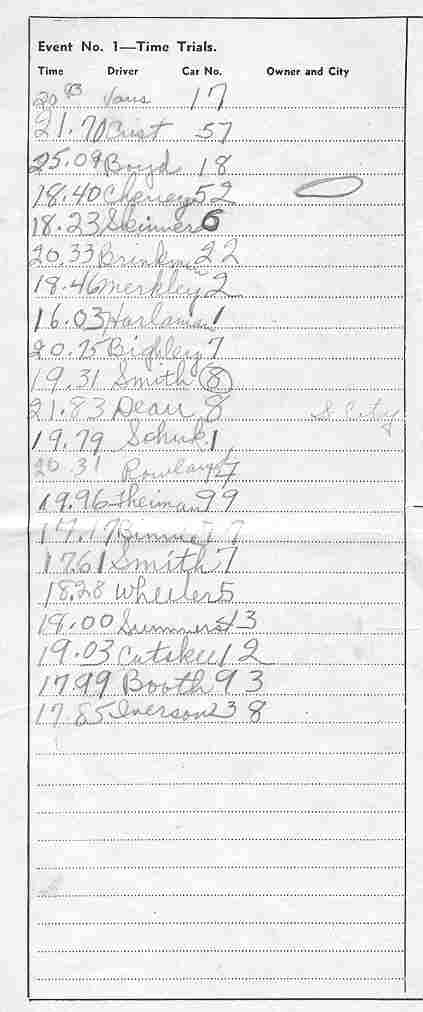 Event No. 1—Time Trials.
Time Driver Car No. Owner and City
20 93 Vans 17
21.70 Crist 57
25.09 Boyd 18
18.40 Cheney 52
18.23 Skinner 6
20.33 22
18.46 Merkley 2
16.03 1
20.75 Bighley 7
19.31 Smith 8
21.83 Dean 8 S City
19.79 Schuk 1
20.31
19.96 Theiman 99
17.17 Binnie 77
17.61 Smith 7
18.28 Wheeler 5
18.00 Summers 43
19.03 12
17.99 Booth 93
17.85 Iverson 38